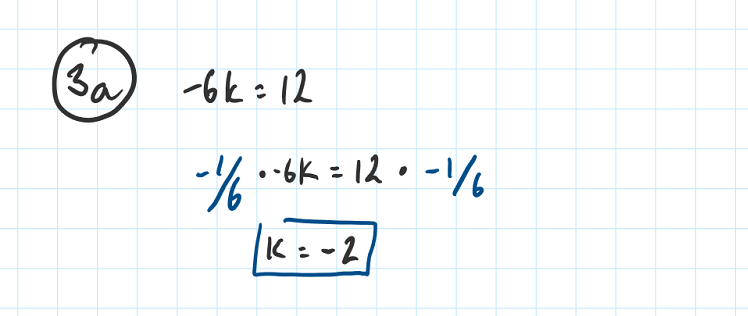 3a -6k = 12
-1/6 · -6k = 12 · -1/6
k = -2